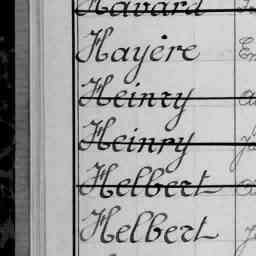 Havard
Hayère
Heinry
Heinry
Helbert
Helbert